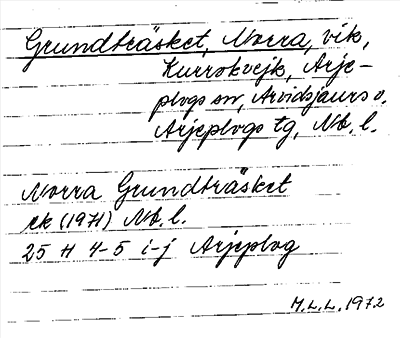 Grundträsket, Norra, vik,
Kurrokvejk, Arje-
plogs sn, Arvidsjaurs o.
Arjeplogs tg, Nb. l.
Norra Grundträsket
ek (1971) Nb. l.
25 H 4-5 i-j Arjeplog
M.L.L. 1972